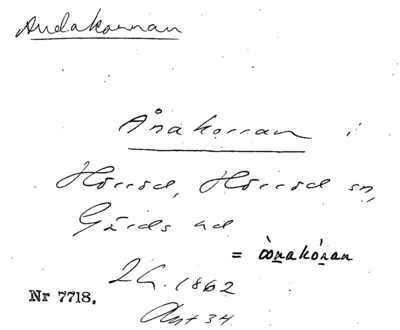 Andakorran
Ånakorran i
Hörröd, Hörröd sn,
Gärds hd
= òonakóran
1862
Nr 7718.
34